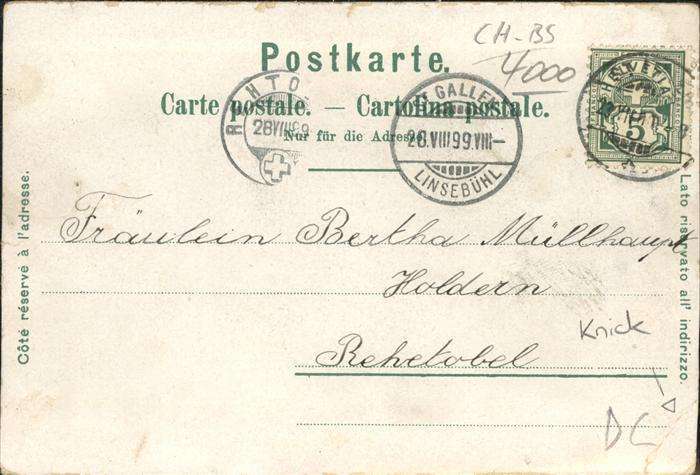 CH-BS
4000
Postkarte.
Carte postale. — Cartolina postale.
Nur für die Adresse.
28 VIII 99
ST GALLEN
28.VIII 99.VIII–
LINSEBÜHL
HELVETIA
5
Fräulein Bertha Müllhaupt
Holdern
Rehetobel
Côté réservé à l'adresse.
Lato riservato all' indirizzo.
Knick
DC